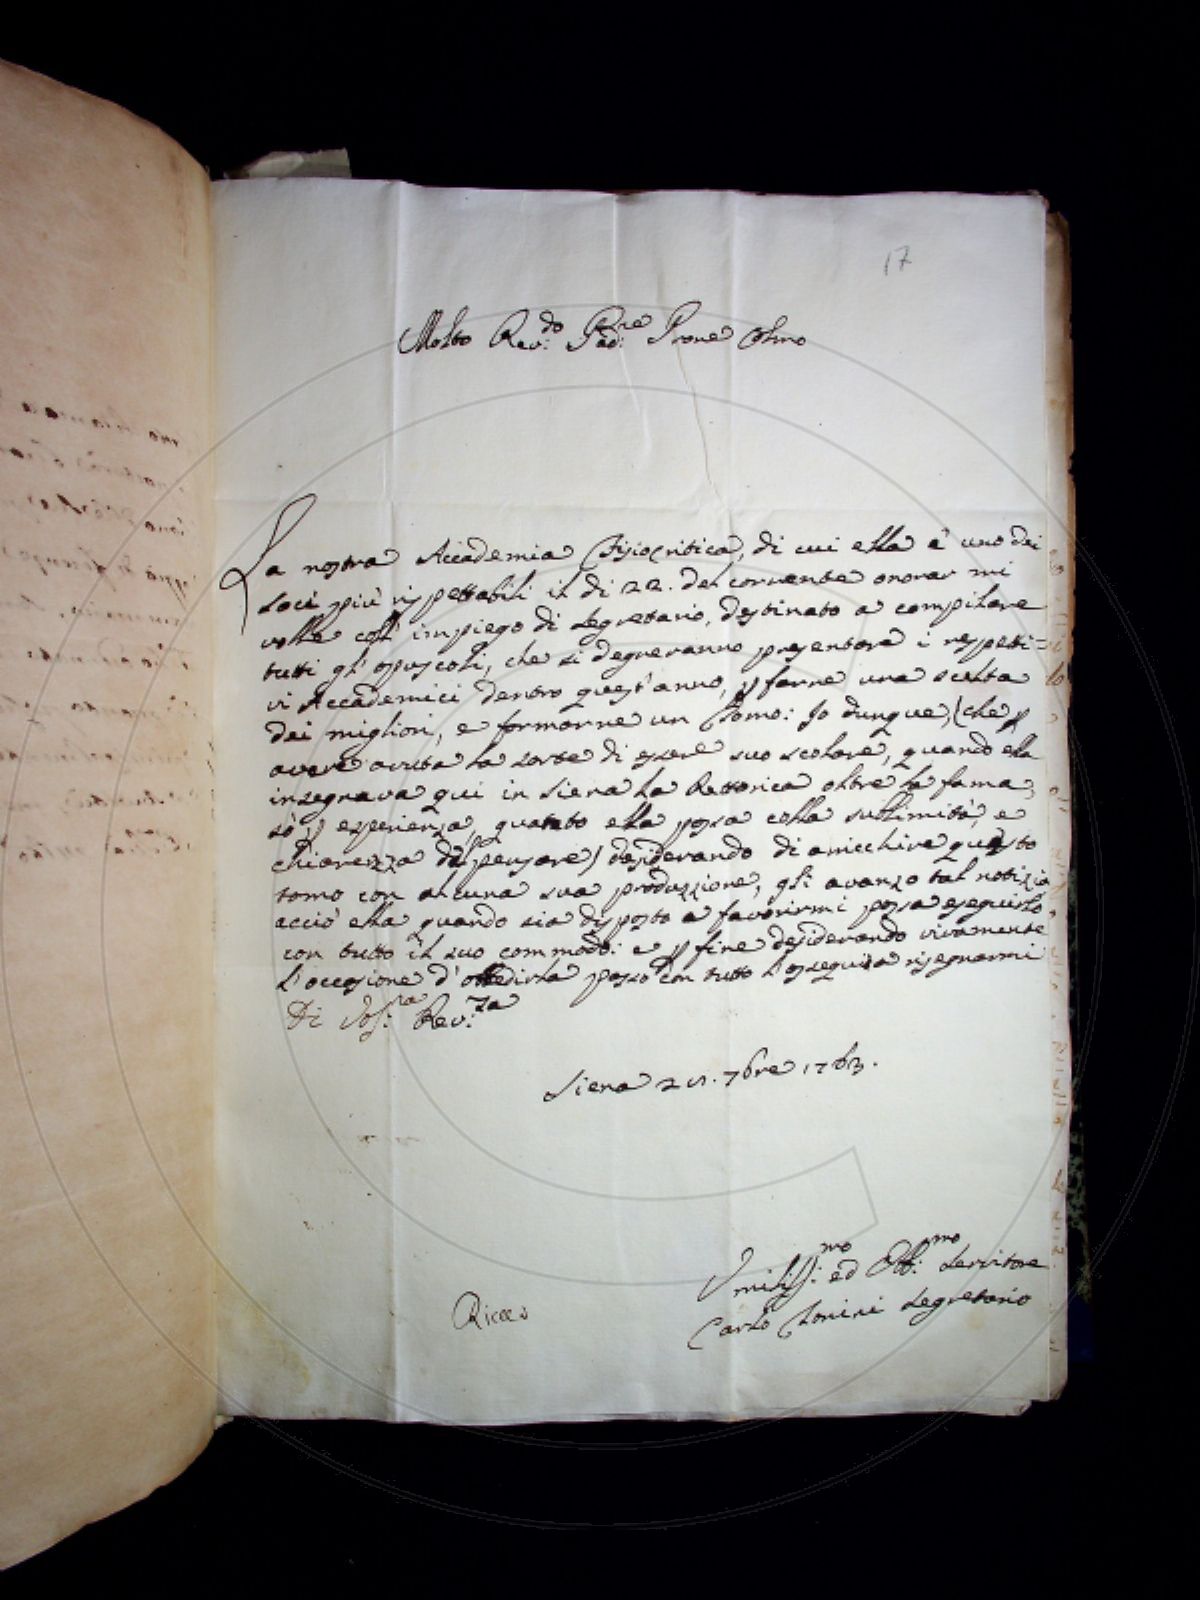 17
Molto Rev:do Pad:re Prone Colmo
La nostra Accademia Fisiocritica, di cui ella è uno dei
socj più rispettabili il di 22. del corrente onorar mi
volle coll' impiego di Segretario, destinato a compilare
tutti gl' opuscoli, che si degneranno presentare i respetti=
vi Accademici dentro quest'anno, p farne una scelta
dei migliori, e formarne un Tomo: Io dunque, (che p
avere avuta la sorte di essere suo scolare, quando ella
insegnava qui in Siena la Rettorica oltre la fama,
sò p esperienza, quanto ella possa colla sublimità, e
chiarezza del pensare) desiderando di arricchire questo
tomo con alcuna sua produzzione, gli avanzo tal notizia
acciò ella quando sia disposto a favorirmi possa eseguirlo
con tutto il suo commodo: e p fine desiderando vivamente
l'occasione d'obbedirla passo con tutto l'ossequio a risegnarmi
Di Vos:ra Rev:za
Siena 25. 7bre 1763.
Umiliss:mo ed Obb:mo Servitore
Carlo Tonini Segretario